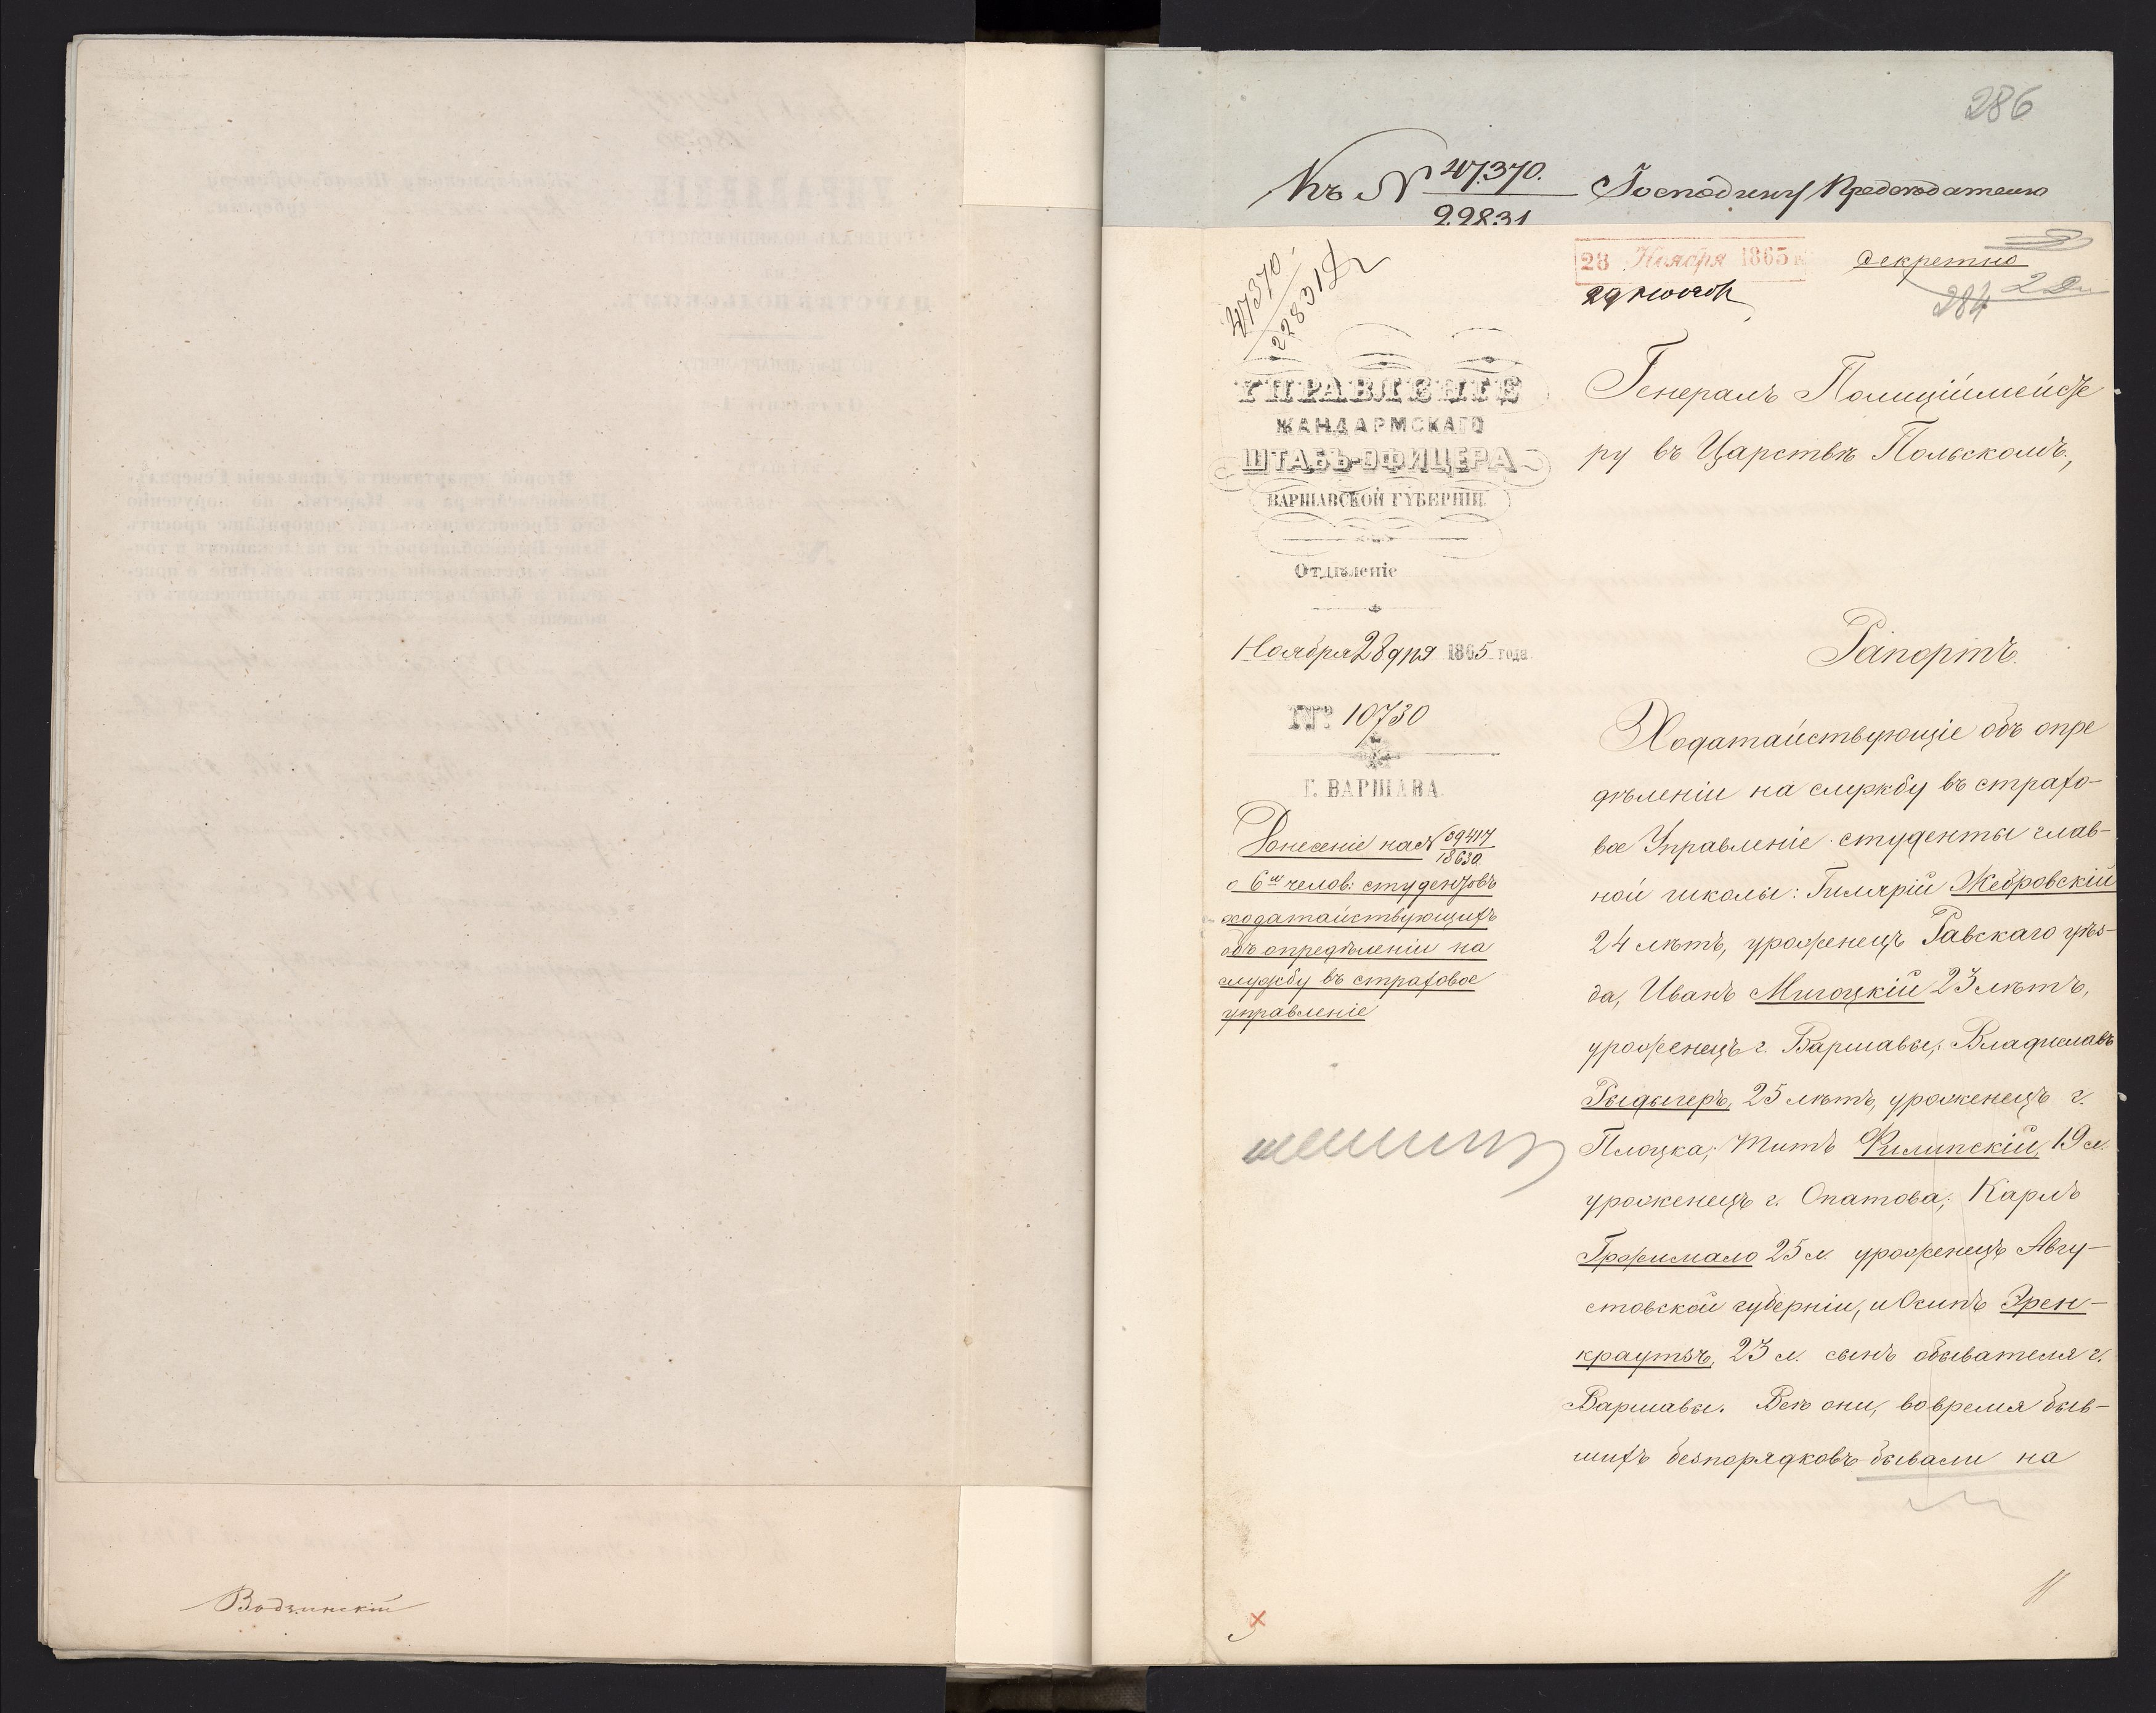 286
Къ № 47370. Господину Председателю
22831
47370
22831
28 Ноября 1865
Секретно
284
УПРАВЛЕНІЕ
ЖАНДАРМСКАГО
ШТАБЪ-ОФИЦЕРА
ВАРШАВСКОЙ ГУБЕРНІИ.
Отдѣленіе
Ноября 28 дня 1865 года.
№ 10730
Г. ВАРШАВА.
Донесеніе на № 09417
18630
о 6ти челов: студентовъ
ходатайствующихъ
объ опредѣленіи на
службу въ страховое
управленіе
Генералъ Полиціймейсте
ру въ Царствѣ Польскомъ,
Рапортъ.
Ходатайствующіе объ опре
дѣленіи на службу въ страхо-
вое Управленіе студенты глав-
ной школы: Гилярій Жебровскій
24 лѣтъ, уроженецъ Равскаго уѣз-
да, Иванъ Милоцкій 23 лѣтъ,
уроженецъ г. Варшавы; Владиславъ
Рыдыгеръ, 25 лѣтъ, уроженецъ г.
Плоцка; Титъ Филипскій, 19 л.
уроженецъ г. Опатова; Карлъ
Гржимало 25 л. уроженецъ Авгу-
стовской губерніи, и Осипъ Эрен-
краутзъ, 23 л. сынъ обывателя г.
Варшавы. Всѣ они, во время быв-
шихъ безпорядковъ бывали на
Водзинскій